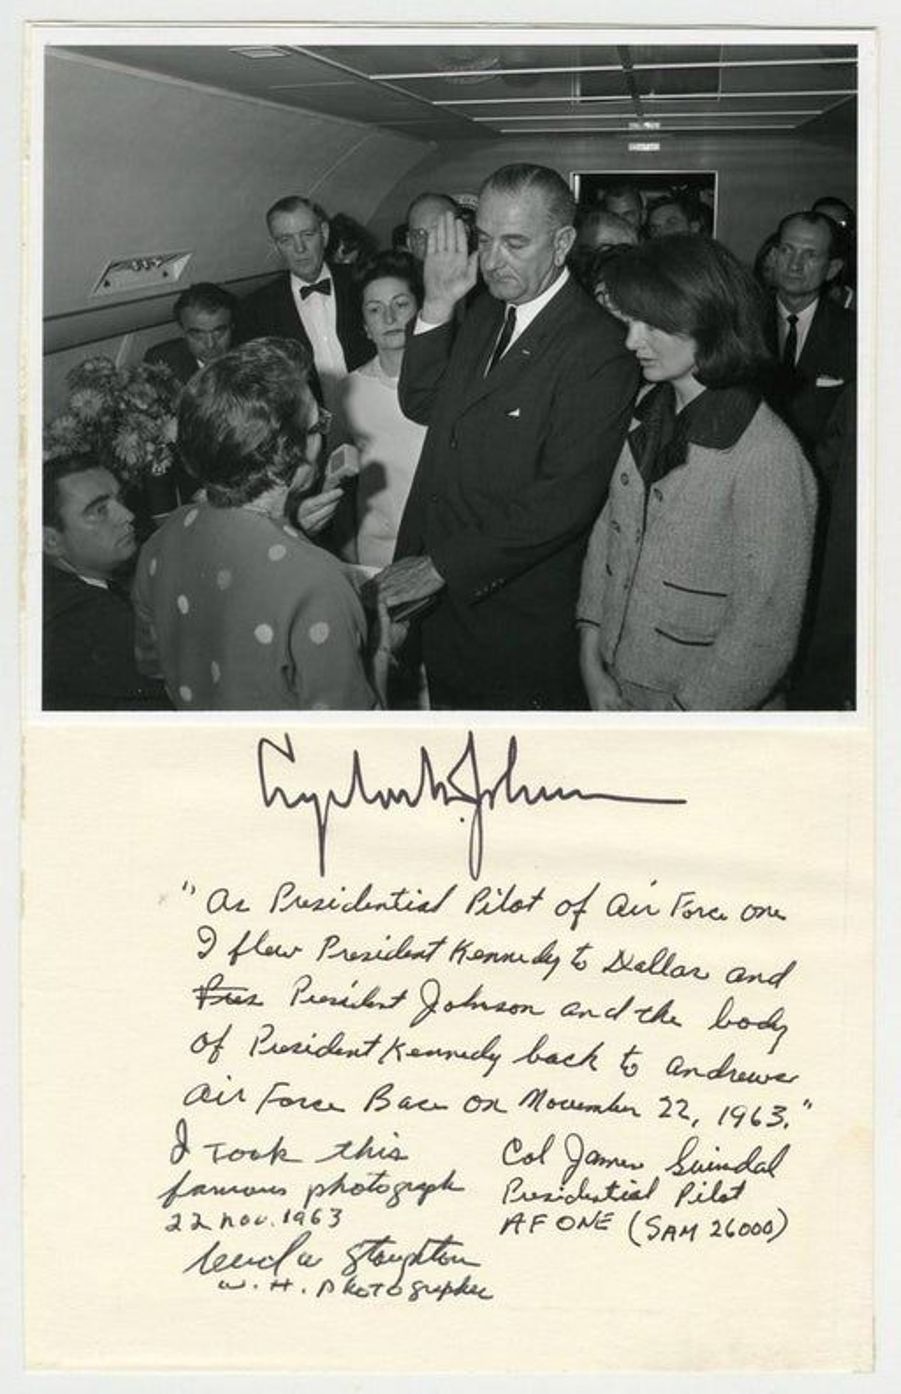 Lyndon B. Johnson
"As Presidential Pilot of Air Force One
I flew President Kennedy to Dallas and
Pres President Johnson and the body
of President Kennedy back to Andrews
Air Force Base on November 22, 1963."
I took this
famous photograph
22 Nov. 1963
Cecil W. Stoughton
W. H. Photographer
Col James Swindal
Presidential Pilot
AF ONE (SAM 26000)